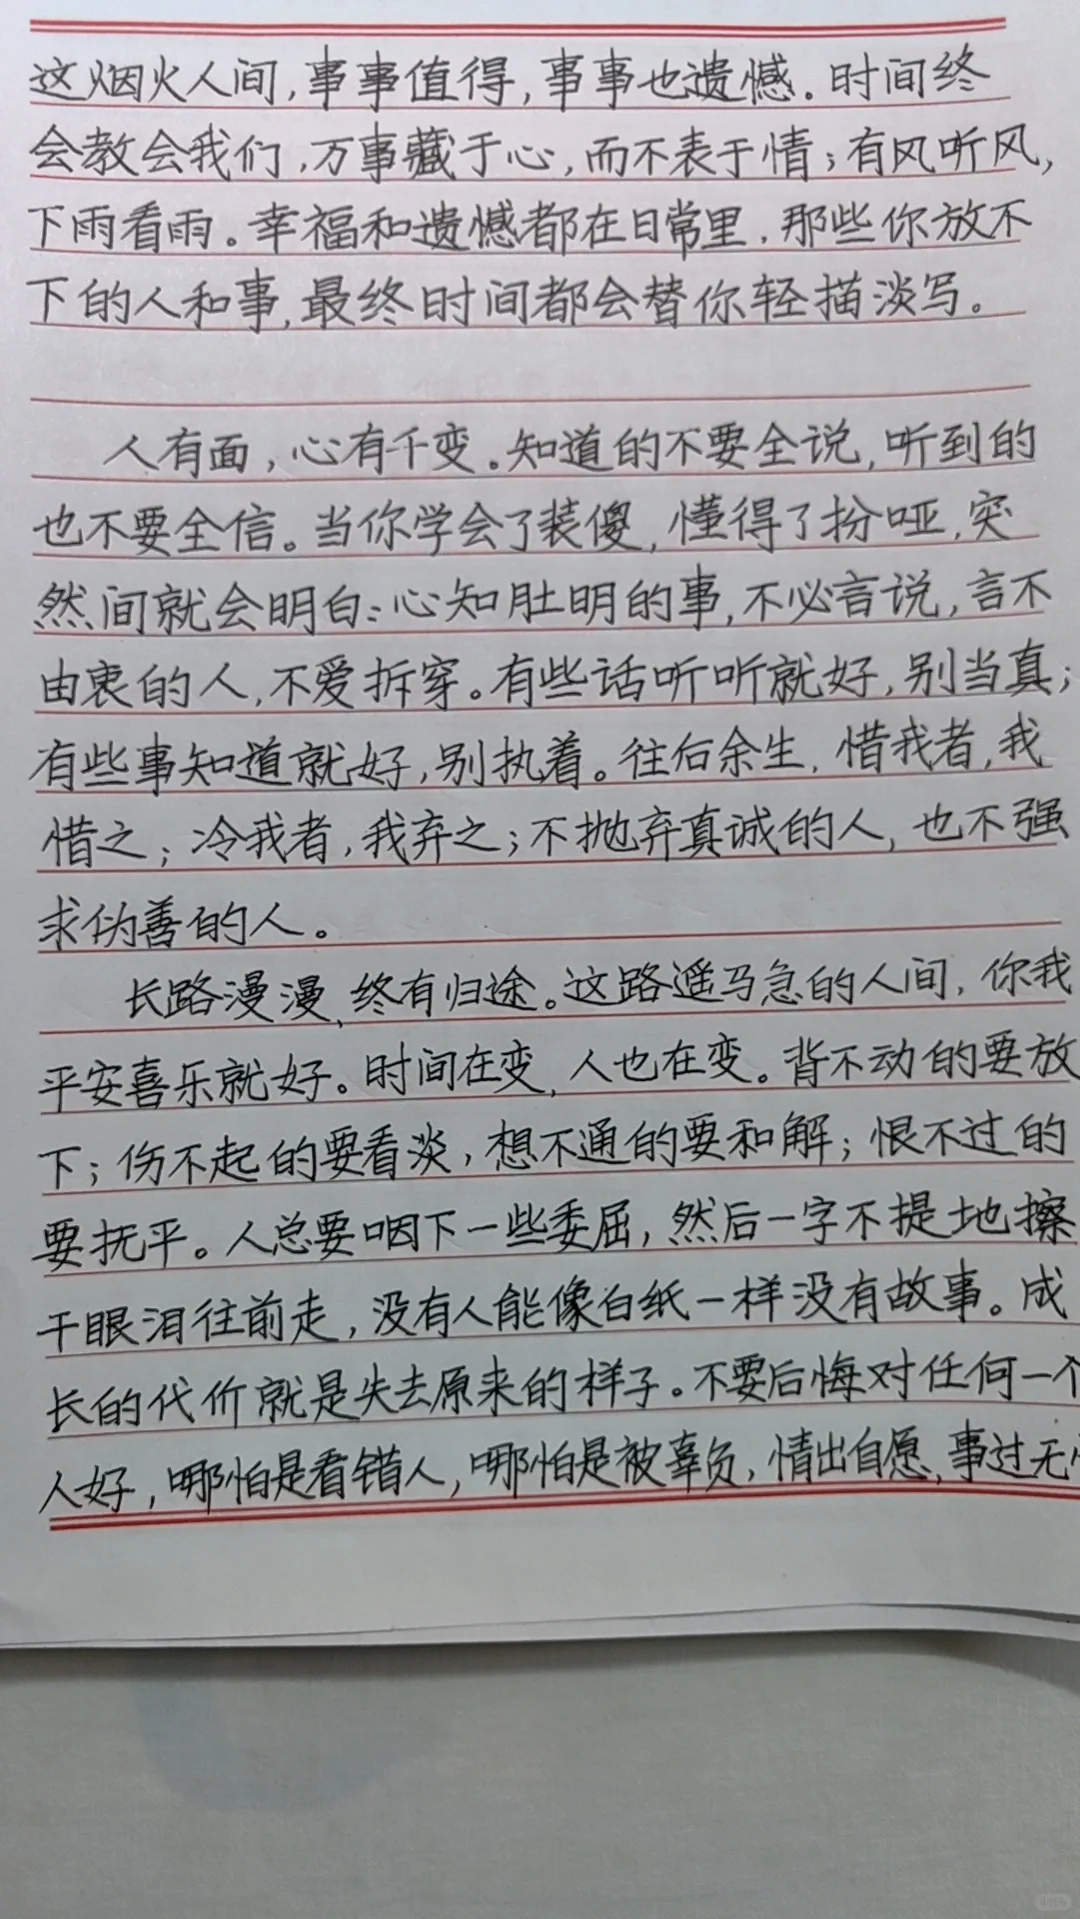 这烟火人间,事事值得,事事也遗憾。时间终
会教会我们,万事藏于心,而不表于情;有风听风,
下雨看雨。幸福和遗憾都在日常里,那些你放不
下的人和事,最终时间都会替你轻描淡写。
人有面,心有千变。知道的不要全说,听到的
也不要全信。当你学会了装傻,懂得了扮哑,突
然间就会明白:心知肚明的事,不必言说,言不
由衷的人,不爱拆穿。有些话听听就好,别当真;
有些事知道就好,别执着。往后余生,惜我者,我
惜之;冷我者,我弃之;不抛弃真诚的人,也不强
求伪善的人。
长路漫漫,终有归途。这路遥马急的人间,你我
平安喜乐就好。时间在变,人也在变。背不动的要放
下;伤不起的要看淡,想不通的要和解;恨不过的
要抚平。人总要咽下一些委屈,然后一字不提地擦
干眼泪往前走,没有人能像白纸一样没有故事。成
长的代价就是失去原来的样子。不要后悔对任何一个
人好,哪怕是看错人,哪怕是被辜负,情出自愿,事过无